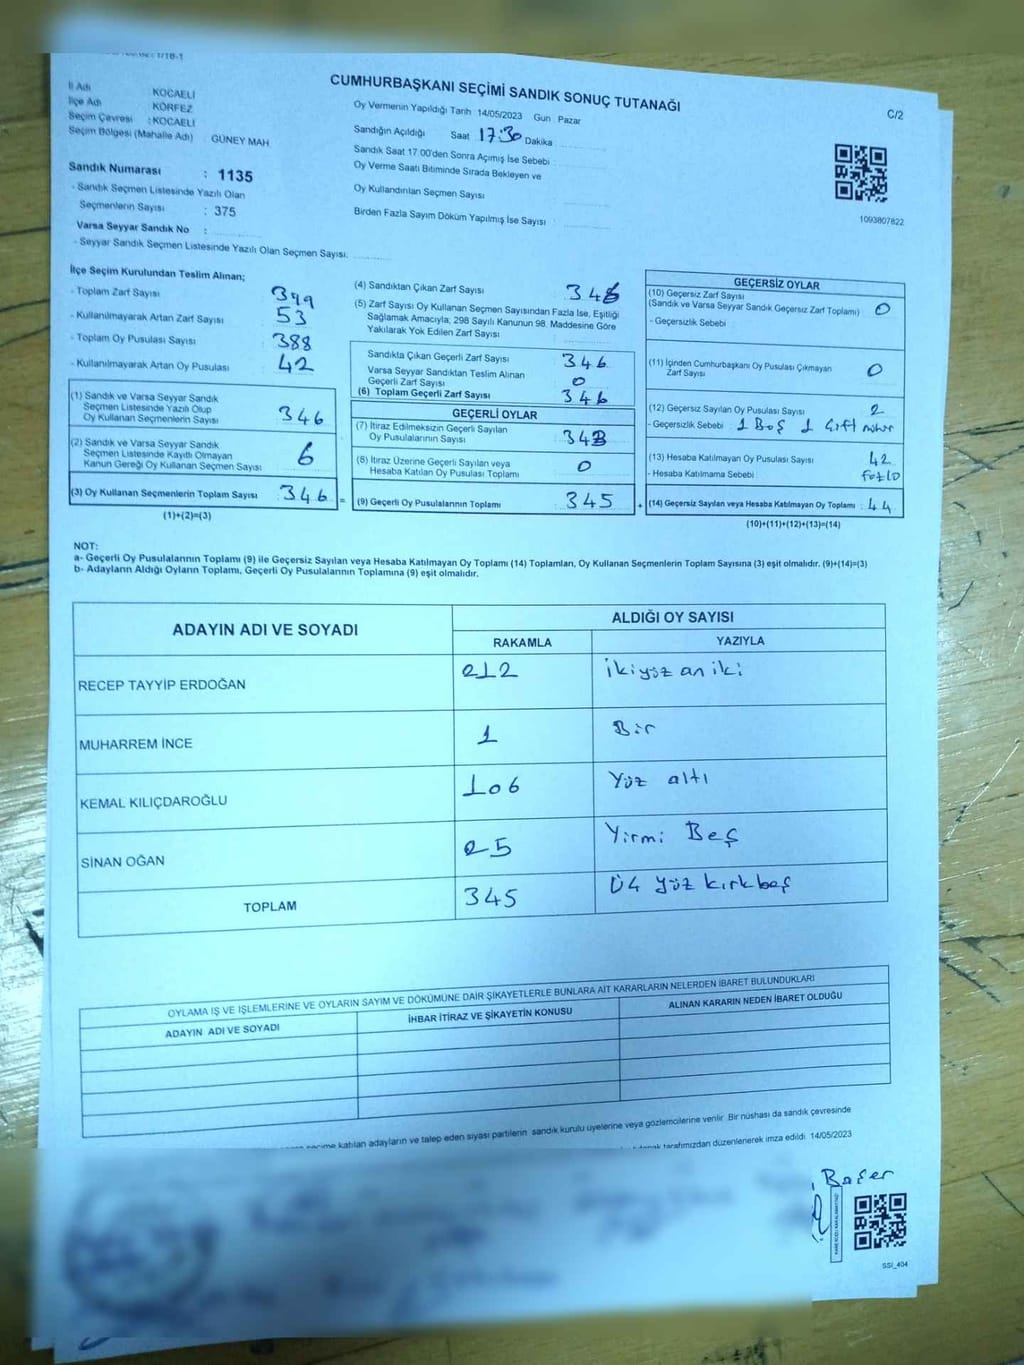 CUMHURBAŞKANI SEÇİMİ SANDIK SONUÇ TUTANAĞI
C/2
İl Adı KOCAELİ
İlçe Adı KÖRFEZ
Seçim Çevresi : KOCAELİ
Seçim Bölgesi (Mahalle Adı) GÜNEY MAH
Sandık Numarası : 1135
- Sandık Seçmen Listesinde Yazılı Olan
Seçmenlerin Sayısı : 375
Varsa Seyyar Sandık No :
- Seyyar Sandık Seçmen Listesinde Yazılı Olan Seçmen Sayısı:
Oy Vermenin Yapıldığı Tarih 14/05/2023 Gun Pazar
Sandığın Açıldığı Saat 17:30 Dakika
Sandık Saat 17.00'den Sonra Açımış İse Sebebi
Oy Verme Saati Bitiminde Sırada Bekleyen ve
Oy Kullandırılan Seçmen Sayısı
Birden Fazla Sayım Döküm Yapılmış İse Sayısı
1093807822
İlçe Seçim Kurulundan Teslim Alınan;
- Toplam Zarf Sayısı 399
- Kullanılmayarak Artan Zarf Sayısı 53
- Toplam Oy Pusulası Sayısı 388
- Kullanılmayarak Artan Oy Pusulası 42
(1) Sandık ve Varsa Seyyar Sandık
Seçmen Listesinde Yazılı Olup
Oy Kullanan Seçmenlerin Sayısı 346
(2) Sandık ve Varsa Seyyar Sandık
Seçmen Listesinde Kayıtlı Olmayan
Kanun Gereği Oy Kullanan Seçmen Sayısı 6
(3) Oy Kullanan Seçmenlerin Toplam Sayısı 346 =
(1)+(2)=(3)
(4) Sandıktan Çıkan Zarf Sayısı 346
(5) Zarf Sayısı Oy Kullanan Seçmen Sayısından Fazla İse, Eşitliği
Sağlamak Amacıyla, 298 Sayılı Kanunun 98. Maddesine Göre
Yakılarak Yok Edilen Zarf Sayısı
Sandıkta Çıkan Geçerli Zarf Sayısı 346
Varsa Seyyar Sandıktan Teslim Alınan
Geçerli Zarf Sayısı 0
(6) Toplam Geçerli Zarf Sayısı 346
GEÇERLİ OYLAR
(7) İtiraz Edilmeksizin Geçerli Sayılan
Oy Pusulalarının Sayısı
(8) İtiraz Üzerine Geçerli Sayılan veya
Hesaba Katılan Oy Pusulası Toplamı 0
(9) Geçerli Oy Pusulalarının Toplamı 345 +
GEÇERSİZ OYLAR
(10) Geçersiz Zarf Sayısı
(Sandık ve Varsa Seyyar Sandık Geçersiz Zarf Toplamı) 0
- Geçersizlik Sebebi
(11) İçinden Cumhurbaşkanı Oy Pusulası Çıkmayan
Zarf Sayısı 0
(12) Geçersiz Sayılan Oy Pusulası Sayısı 2
- Geçersizlik Sebebi : 1 Boş 1 Çift mühür
(13) Hesaba Katılmayan Oy Pusulası Sayısı 42
- Hesaba Katılmama Sebebi Fazla
(14) Geçersiz Sayılan veya Hesaba Katılmayan Oy Toplamı : 44
(10)+(11)+(12)+(13)=(14)
NOT:
a- Geçerli Oy Pusulalarının Toplamı (9) ile Geçersiz Sayılan veya Hesaba Katılmayan Oy Toplamı (14) Toplamları, Oy Kullanan Seçmenlerin Toplam Sayısına (3) eşit olmalıdır. (9)+(14)=(3)
b- Adayların Aldığı Oyların Toplamı, Geçerli Oy Pusulalarının Toplamına (9) eşit olmalıdır.
ADAYIN ADI VE SOYADI
ALDIĞI OY SAYISI
RAKAMLA YAZIYLA
RECEP TAYYİP ERDOĞAN 212 İkiyüz on iki
MUHARREM İNCE 1 Bir
KEMAL KILIÇDAROĞLU 106 Yüz altı
SİNAN OĞAN 25 Yirmi Beş
TOPLAM 345 Üç yüz kırkbeş
OYLAMA İŞ VE İŞLEMLERİNE VE OYLARIN SAYIM VE DÖKÜMÜNE DAİR ŞİKAYETLERLE BUNLARA AİT KARARLARIN NELERDEN İBARET BULUNDUKLARI
ADAYIN ADI VE SOYADI
İHBAR İTİRAZ VE ŞİKAYETİN KONUSU
ALINAN KARARIN NEDEN İBARET OLDUĞU
seçime katılan adayların ve talep eden siyasi partilerin sandık kurulu üyelerine veya gözlemcilerine verilir. Bir nüshası da sandık çevresinde
tarafımızdan düzenlenerek imza edildi. 14/05/2023
SSİ_404